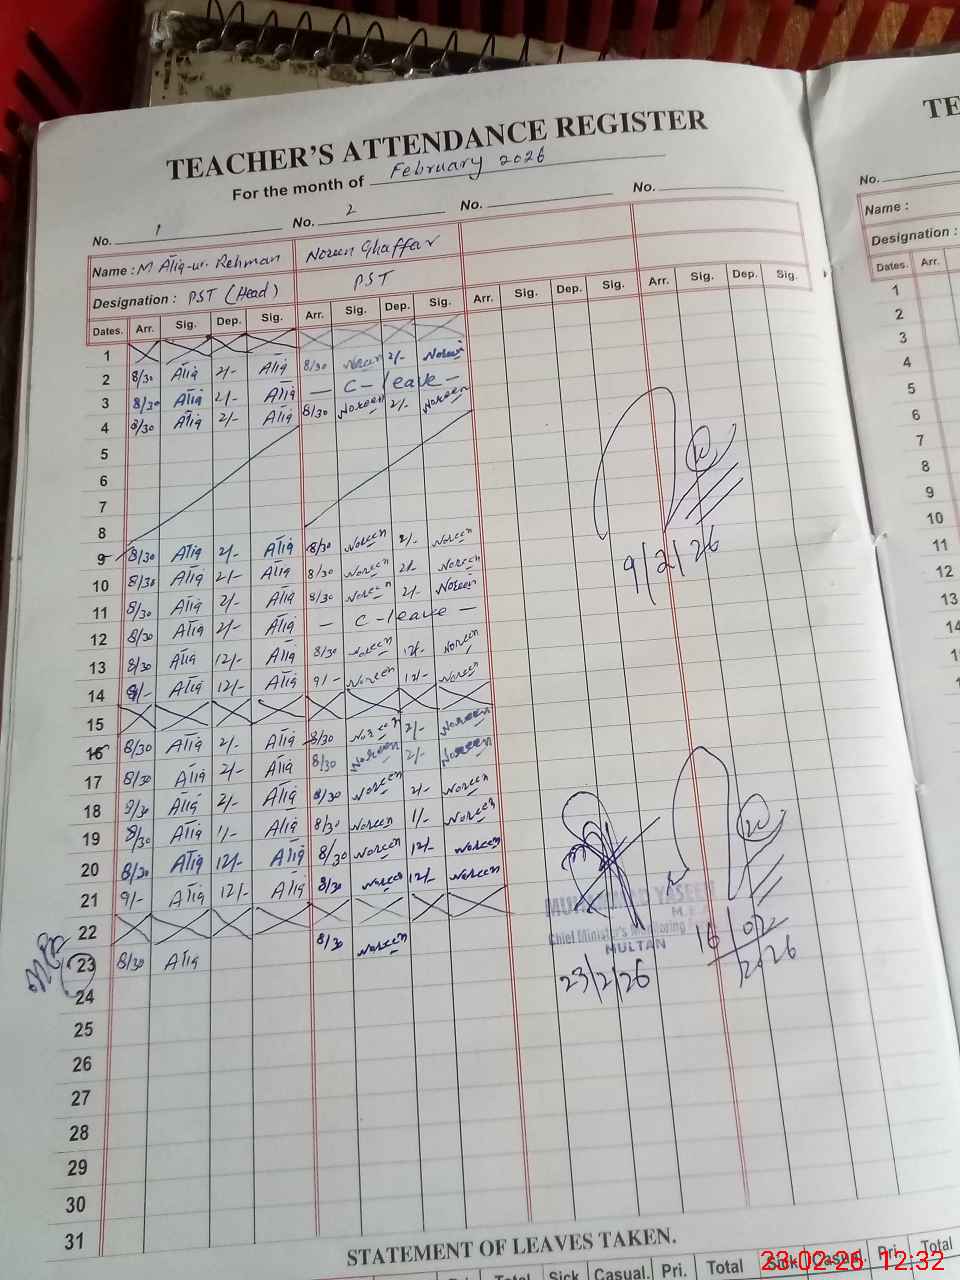 TEACHER'S ATTENDANCE REGISTER
For the month of February 2026
No. 1 No. 2 No. No.
Name : M Atiq-ur-Rehman Noreen Ghaffar
Designation : PST (Head) PST
Dates. Arr. Sig. Dep. Sig. Arr. Sig. Dep. Sig. Arr. Sig. Dep. Sig. Arr. Sig. Dep. Sig.
1
2 8/30 Atiq 2/- Atiq 8/30 Noreen 2/- Noreen
3 8/30 Atiq 2/- Atiq — C-leave —
4 8/30 Atiq 2/- Atiq 8/30 Noreen 2/- Noreen
5
6
7
8
9 8/30 Atiq 2/- Atiq 8/30 Noreen 2/- Noreen
10 8/30 Atiq 2/- Atiq 8/30 Noreen 2/- Noreen
11 8/30 Atiq 2/- Atiq 8/30 Noreen 2/- Noreen
12 8/30 Atiq 2/- Atiq — C-leave —
13 8/30 Atiq 12/- Atiq 8/30 Noreen 12/- Noreen
14 9/- Atiq 12/- Atiq 9/- Noreen 12/- Noreen
15
16 8/30 Atiq 2/- Atiq 8/30 Noreen 2/- Noreen
17 8/30 Atiq 2/- Atiq 8/30 Noreen 2/- Noreen
18 8/30 Atiq 2/- Atiq 8/30 Noreen 2/- Noreen
19 8/30 Atiq 1/- Atiq 8/30 Noreen 1/- Noreen
20 8/30 Atiq 12/- Atiq 8/30 Noreen 12/- Noreen
21 9/- Atiq 12/- Atiq 8/30 Noreen 12/- Noreen
22
23 8/30 Atiq 8/30 Noreen
24
25
26
27
28
29
30
31
9/2/26
MUHAMMAD YASEEN
M.E.A
Chief Minister's Monitoring Force
MULTAN
23/2/26
16/02/2026
STATEMENT OF LEAVES TAKEN.
Total Sick Casual. Pri. Total Sick Casual. Pri. Total
TE
No.
Name :
Designation :
Dates. Arr.
1
2
3
4
5
6
7
8
9
10
11
12
13
14
23-02-26 12:32